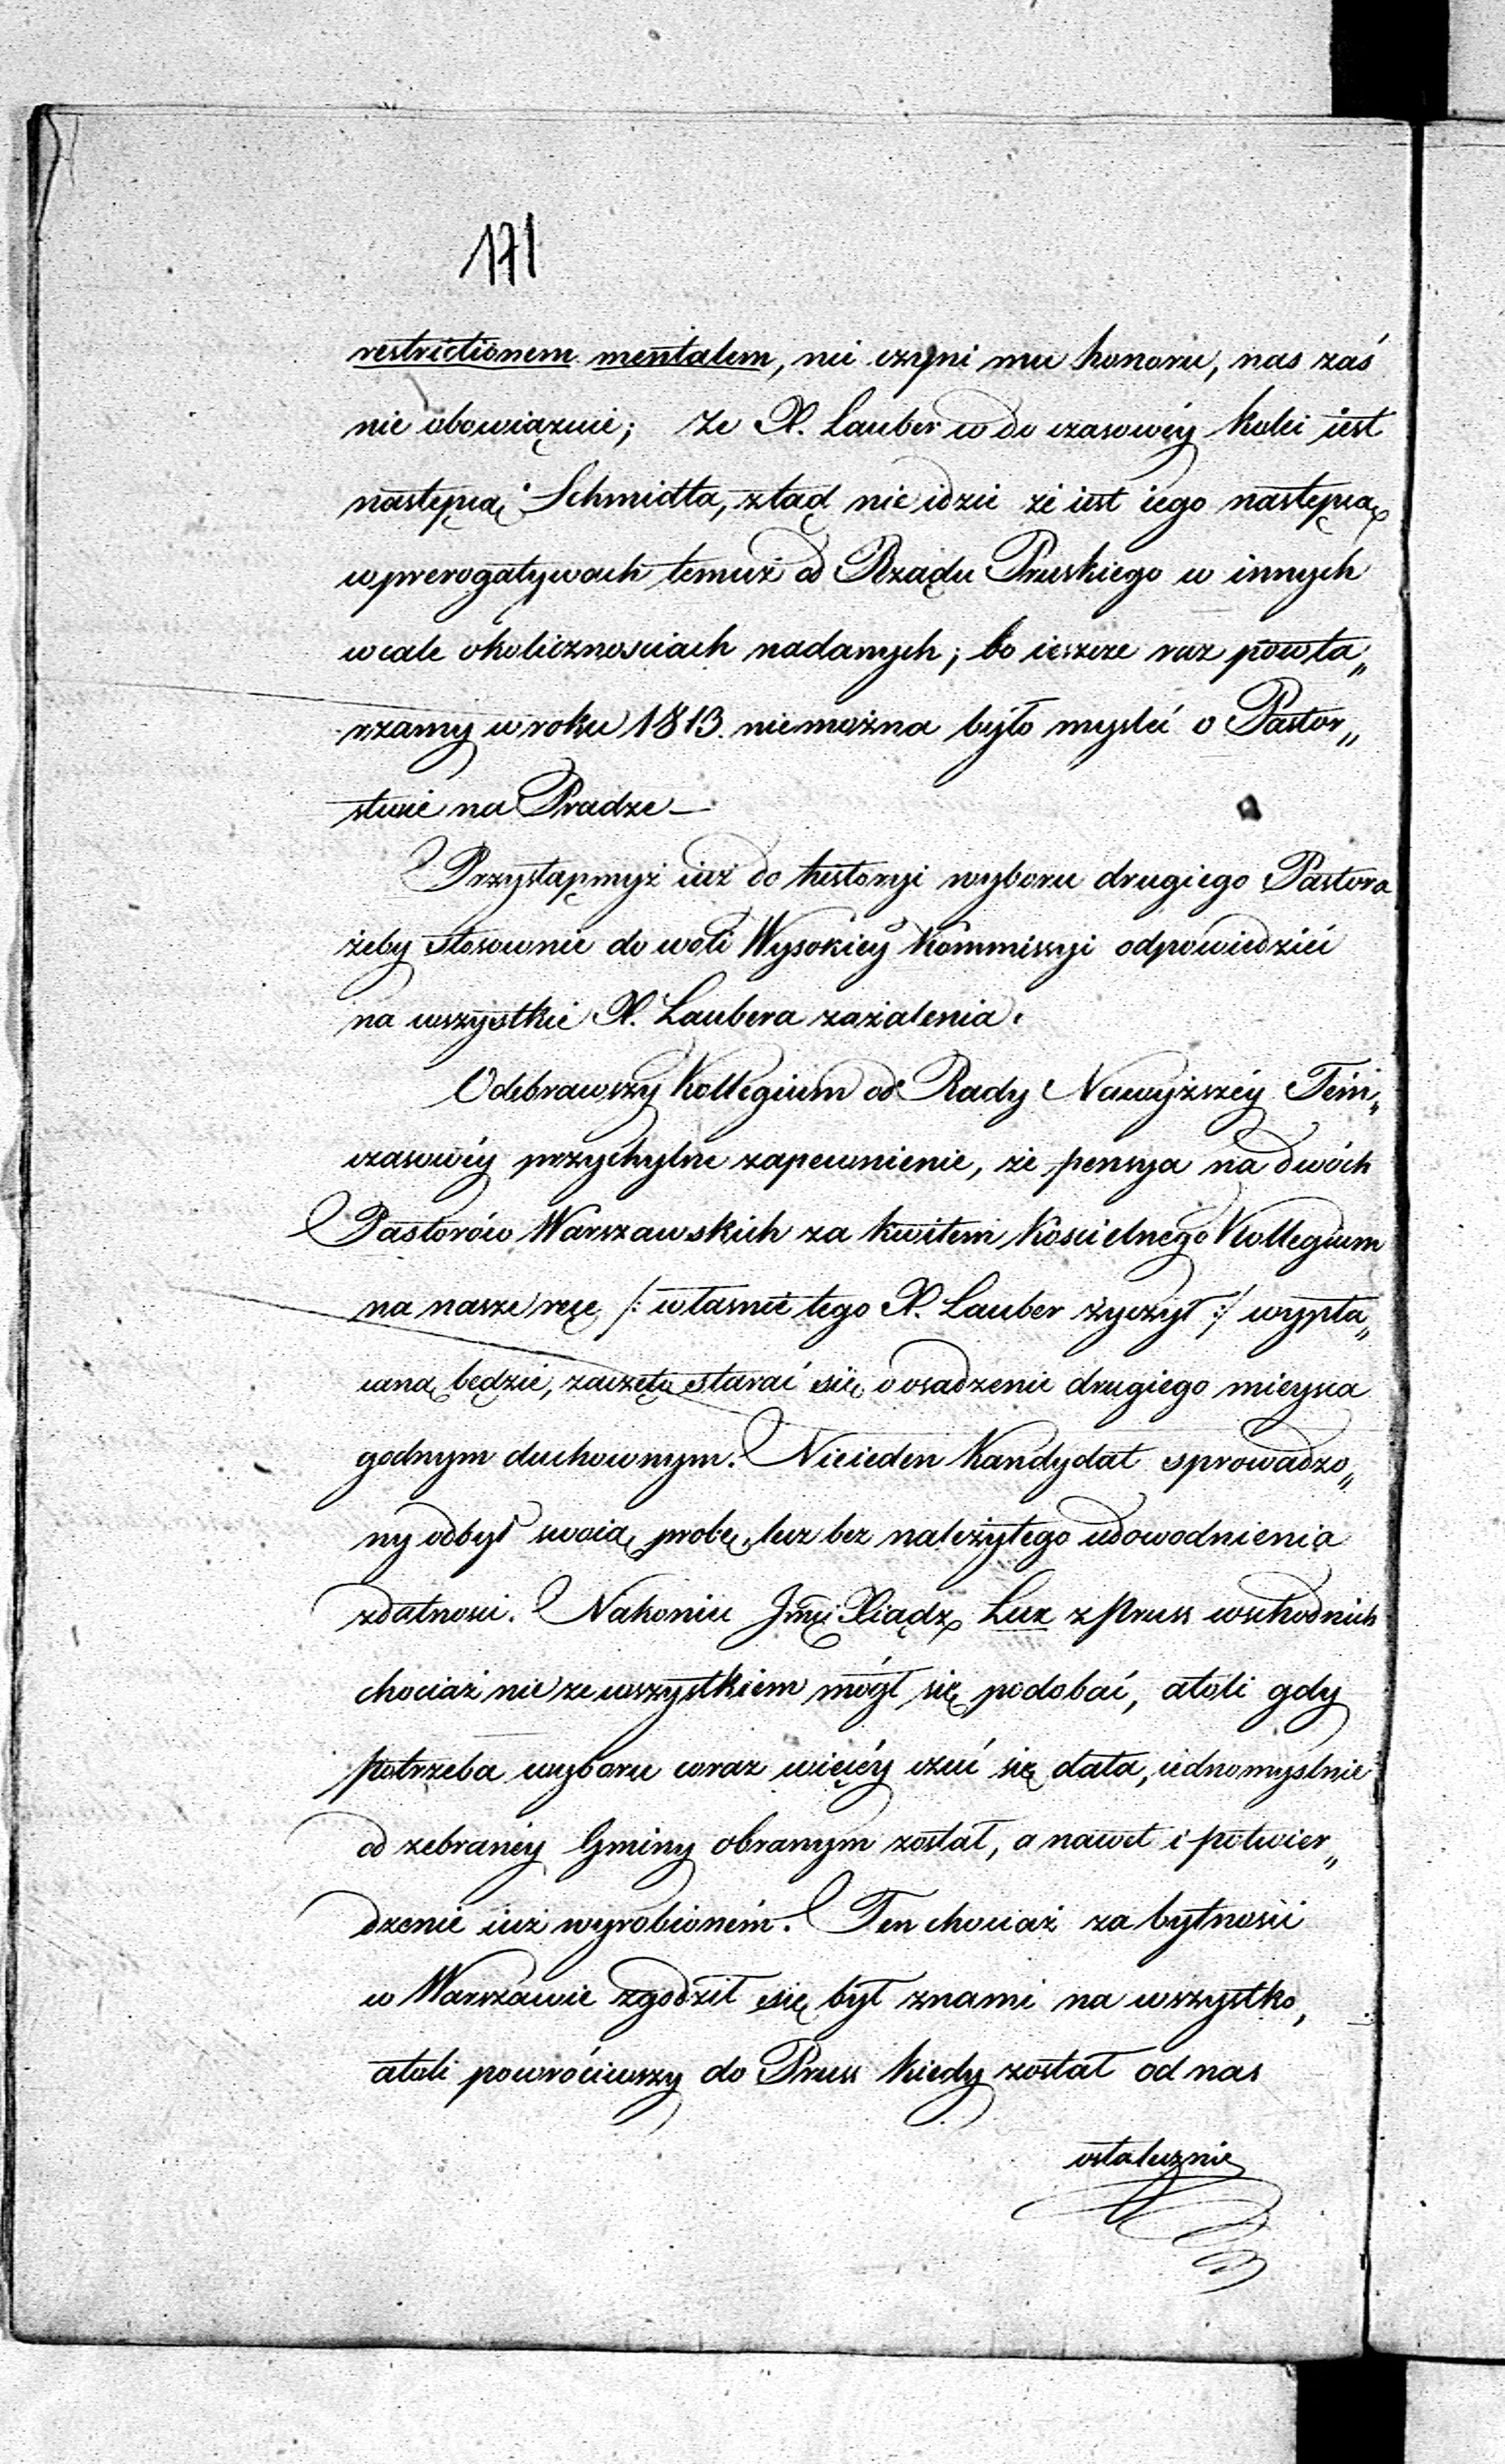 171
restrictionem mentalem, nie czyni mu honoru, nas zaś
nie obowiązuie; że X. Lauber w do czasowéy kolei iest
następcą Schmidta, ztąd nie idzie że iest iego następcą
w prerogatywach temuż od Rządu Pruskiego w innych
wcale okolicznosciach nadanych; bo ieszcze raz powta„
rzamy w roku 1813. niemożna było mysleć o Pastor„
stwie na Pradze —
Przystąpmyż iuż do historyi wyboru drugiego Pastora
żeby stosownie do woli Wysokiey Kommissyi odpowiedzieć
na wszystkie X. Laubera zażalenia.
Odebrawszy Kollegium od Rady Naywyższéy Tém„
czasowéy przychylne zapewnienie, że pensya na dwóch
Pastorów Warszawskich za kwitem Koscielnego Kollegium
na nasze ręce /: własnie tego X. Lauber życzył :/ wypła„
caną będzie, zaczęto starać się o osadzenie drugiego mieysca
godnym duchownym. Nieieden Kandydat sprowadzo„
ny odbył swoią probę, lecz bez należytego udowodnienia
zdatnosci. Nakoniec Jmć Xiądz Luz z Pruss wschodnich
chociaż nie ze wszystkiem mógł się podobać, atoli gdy
potrzeba wyboru coraz więcéy czuć się dała, iednomyslnie
od zebranéy Gminy obranym został, a nawet i potwier„
dzenie iuż wyrobioném. Ten chociaż za bytnosci
w Warszawie zgodził się był znami na wszystko,
atoli powróciwszy do Pruss kiedy został od nas
ostatecznie